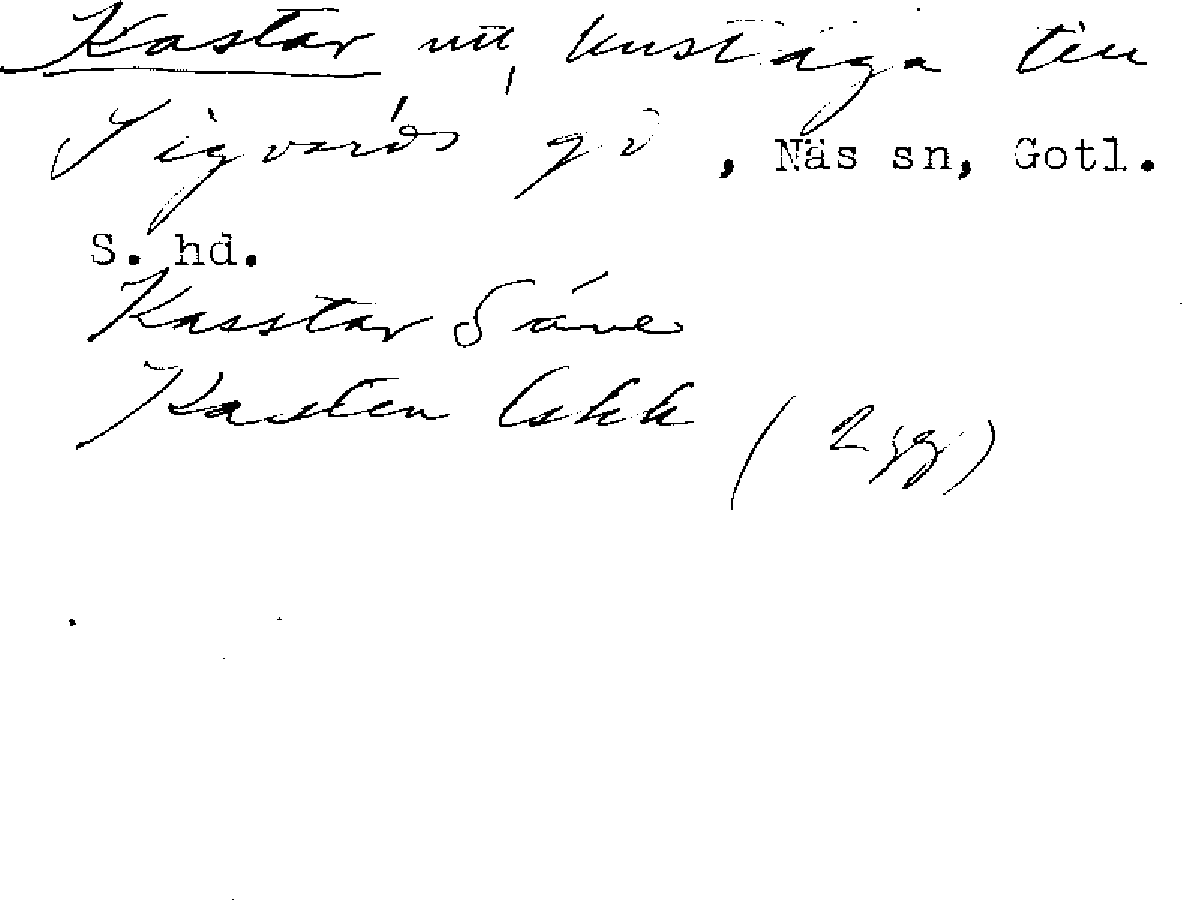 Kastar utt, kustäga till
Sigvards gd, Näs sn, Gotl.
S. hd.
Kasstar Säve
Kasten Eskk (2 gg)